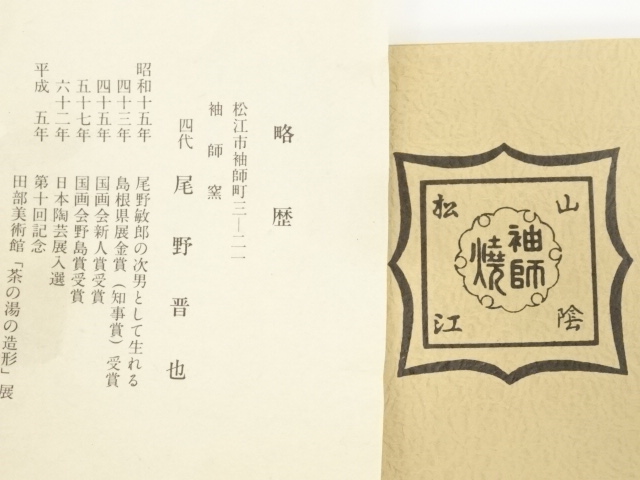 略歴
松江市袖師町三—二一
袖師窯
四代 尾野晋也
昭和十五年 尾野敏郎の次男として生れる
四十三年 島根県展金賞（知事賞）受賞
四十五年 国画会新人賞受賞
五十七年 国画会野島賞受賞
六十二年 日本陶芸展入選
平成 五年 第十回記念
田部美術館「茶の湯の造形」展
山陰
袖師焼
松江